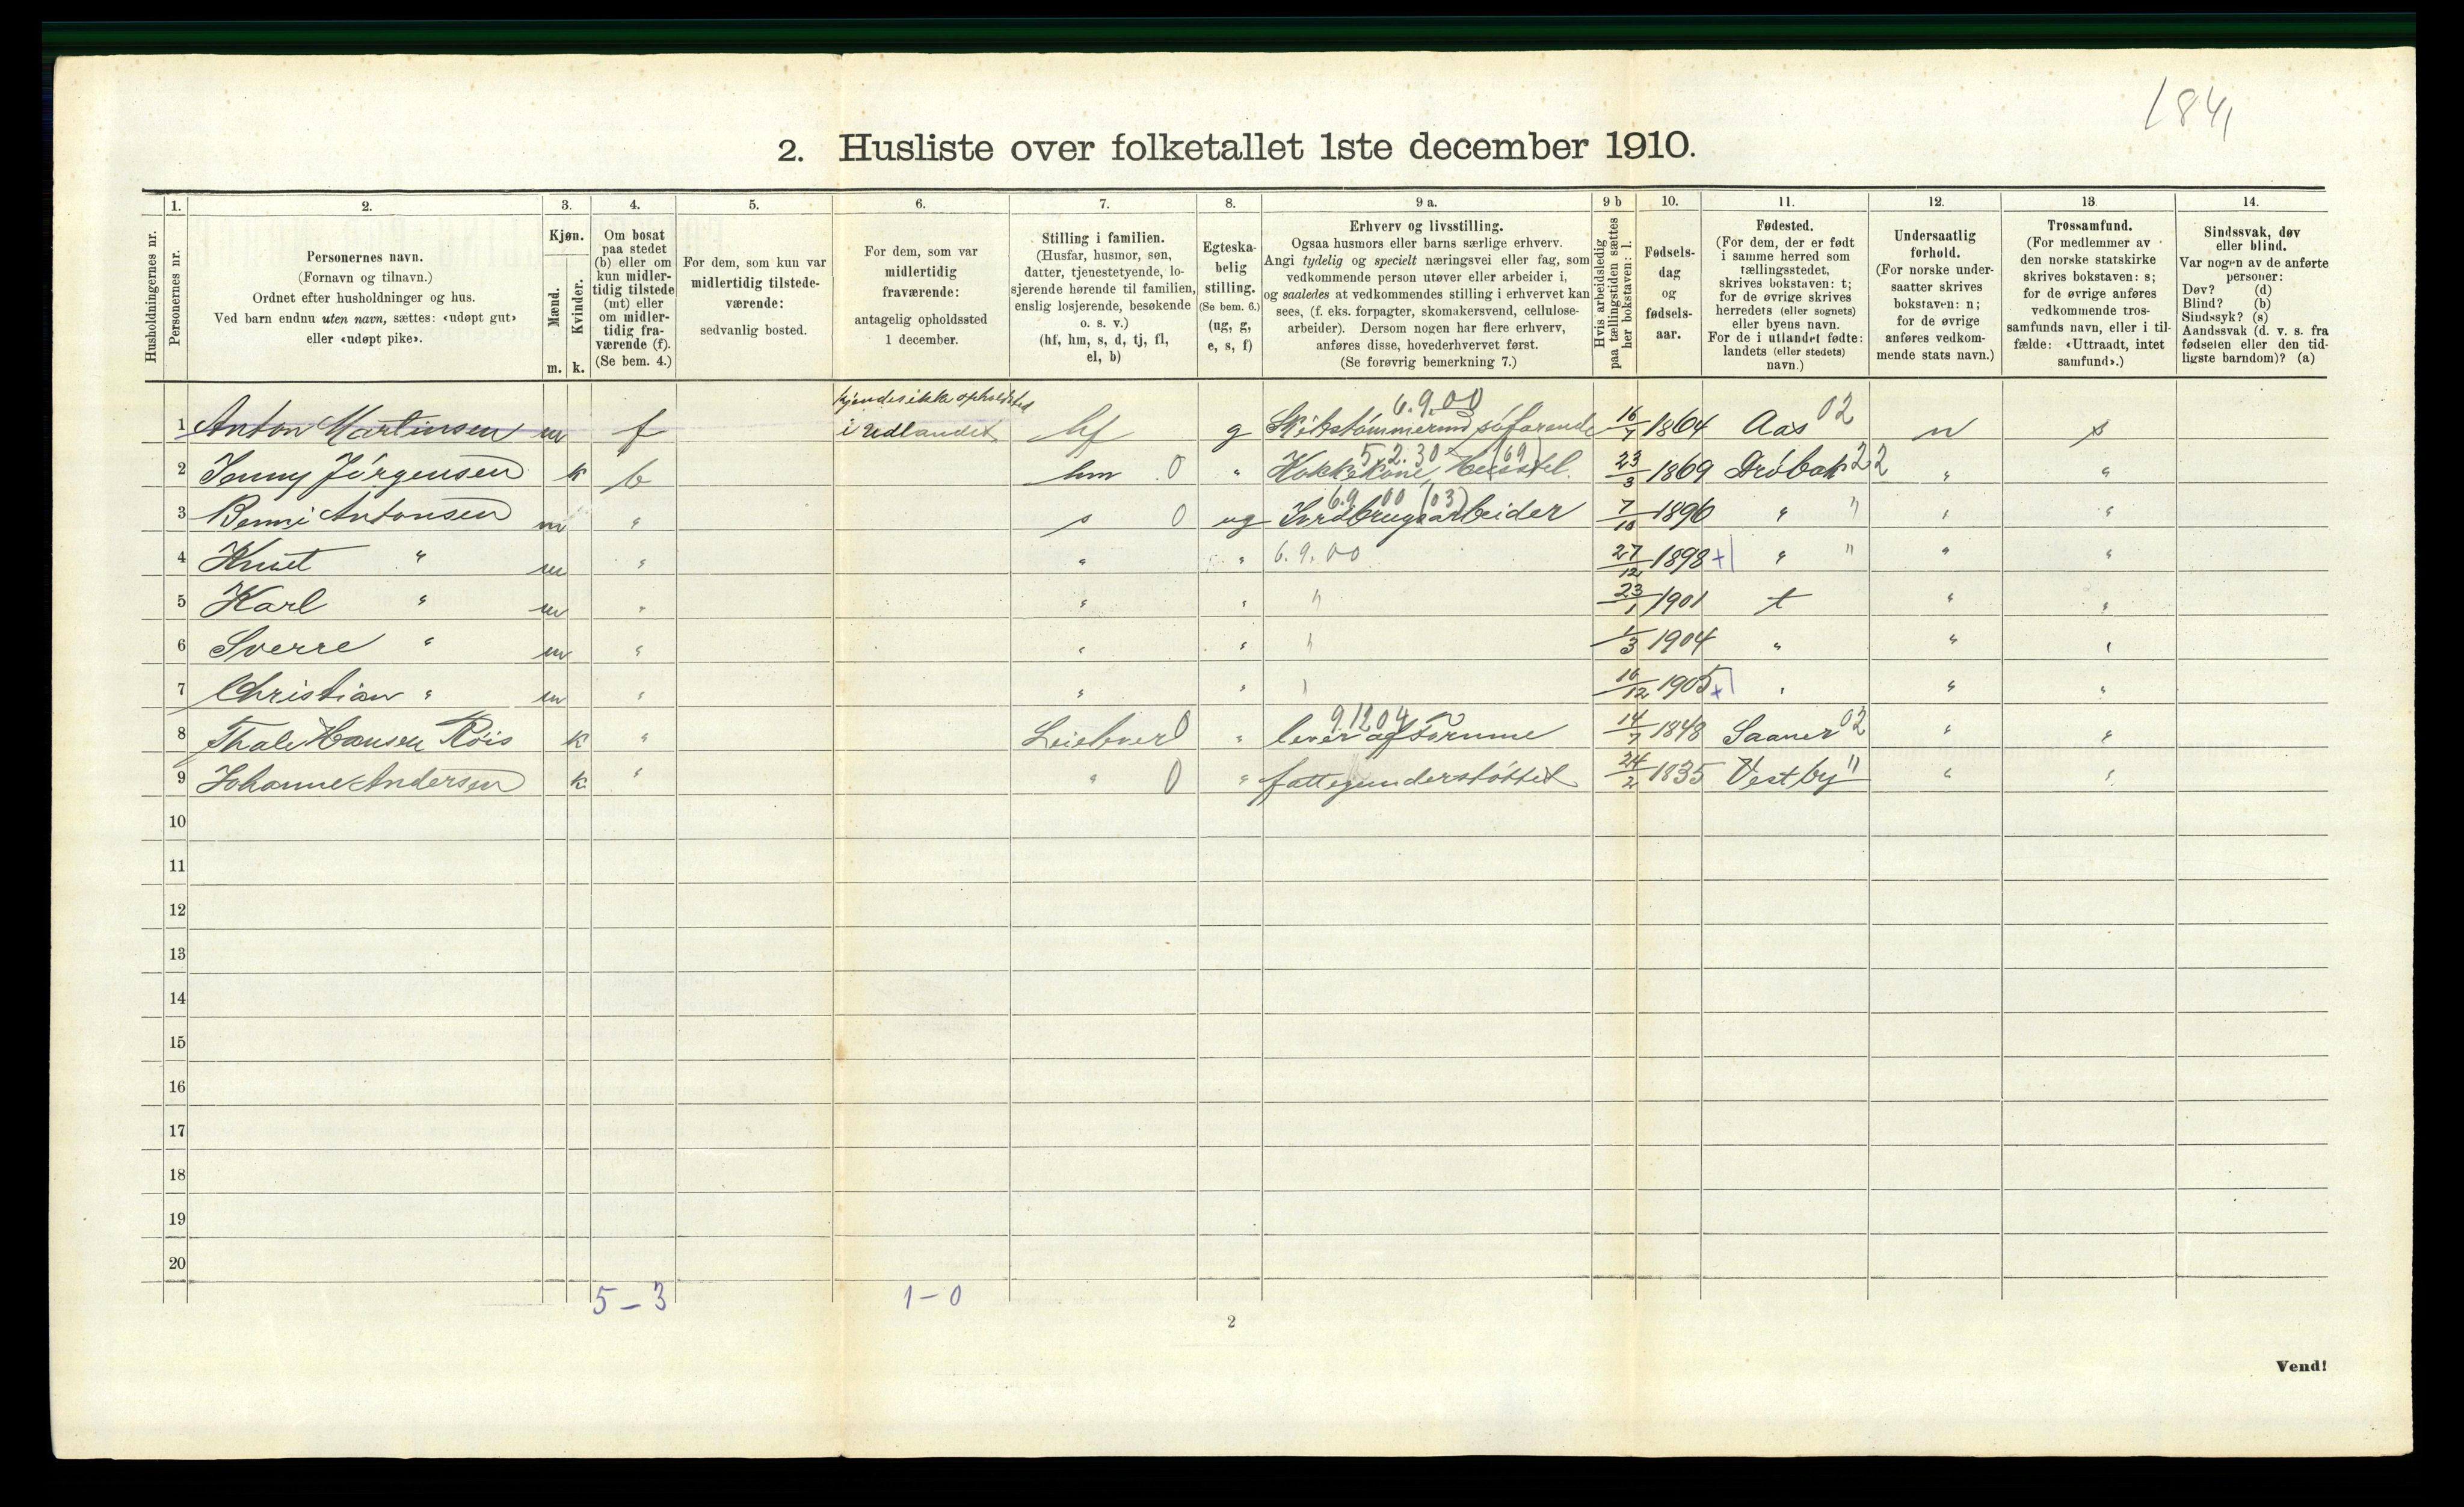 184,
2. Husliste over folketallet 1ste december 1910.
Husholdningernes nr.
1. Personernes nr.
2. Personernes navn.
(Fornavn og tilnavn.)
Ordnet efter husholdninger og hus.
Ved barn endnu uten navn, sættes: «udøpt gut»
eller «udøpt pike».
3. Kjøn.
Mænd. Kvinder.
m. k.
4. Om bosat
paa stedet
(b) eller om
kun midler-
tidig tilstede
(mt) eller
om midler-
tidig fra-
værende (f).
(Se bem. 4.)
5. For dem, som kun var
midlertidig tilstede-
værende:
sedvanlig bosted.
6. For dem, som var
midlertidig
fraværende:
antagelig opholdssted
1 december.
7. Stilling i familien.
(Husfar, husmor, søn,
datter, tjenestetyende, lo-
sjerende hørende til familien,
enslig losjerende, besøkende
o. s. v.)
(hf, hm, s, d, tj, fl,
el, b)
8. Egteska-
belig
stilling.
(Se bem. 6.)
(ug, g,
e, s, f)
9 a. Erhverv og livsstilling.
Ogsaa husmors eller barns særlige erhverv.
Angi tydelig og specielt næringsvei eller fag, som
vedkommende person utøver eller arbeider i,
og saaledes at vedkommendes stilling i erhvervet kan
sees, (f. eks. forpagter, skomakersvend, cellulose-
arbeider). Dersom nogen har flere erhverv,
anføres disse, hovederhvervet først.
(Se forøvrig bemerkning 7.)
9 b Hvis arbeidsledig
paa tællingstiden sættes
her bokstaven: l.
10. Fødsels-
dag
og
fødsels-
aar.
11. Fødested.
(For dem, der er født
i samme herred som
tællingsstedet,
skrives bokstaven: t;
for de øvrige skrives
herredets (eller sognets)
eller byens navn.
For de i utlandet fødte:
landets (eller stedets)
navn.)
12. Undersaatlig
forhold.
(For norske under-
saatter skrives
bokstaven: n;
for de øvrige
anføres vedkom-
mende stats navn.)
13. Trossamfund.
(For medlemmer av
den norske statskirke
skrives bokstaven: s;
for de øvrige anføres
vedkommende tros-
samfunds navn, eller i til-
fælde: «Uttraadt, intet
samfund».)
14. Sindssvak, døv
eller blind.
Var nogen av de anførte
personer:
Døv? (d)
Blind? (b)
Sindssyk? (s)
Aandssvak (d. v. s. fra
fødselen eller den tid-
ligste barndom)? (a)
kjendes ikke opholdsted 6.9.00
1 Anton Martinsen m f i udlandet hf g søfarende 16/7 1864 Aas 02 n s
5.2.30 (69)
2 Jenny Jørgensen k b hm 0 " Kokkekone, Husstel 23/3 1869 Drøbak 22 " "
6.9 00 (03)
3 Benni Antonsen m " s 0 ug Jordbrugsarbeider 7/10 1896 " " " "
4 Knut " m " " " 6.9.00 27/12 1898 + " " " "
5 Karl " m " " " " 23/1 1901 t " "
6 Sverre " m " " " " 1/3 1904 " " "
7 Christian " m " " " " 16/12 1905 + " " "
9 12 04
8 Thale Hansen Røis k " 0 " lever af Formue 14/7 1848 Saaner 02 " "
9 Johanne Andersen k " " 0 " fattigunderstøttet 24/2 1835 Vestby " " "
10
11
12
13
14
15
16
17
18
19
20
5 – 3 1 – 0
2
Vend!